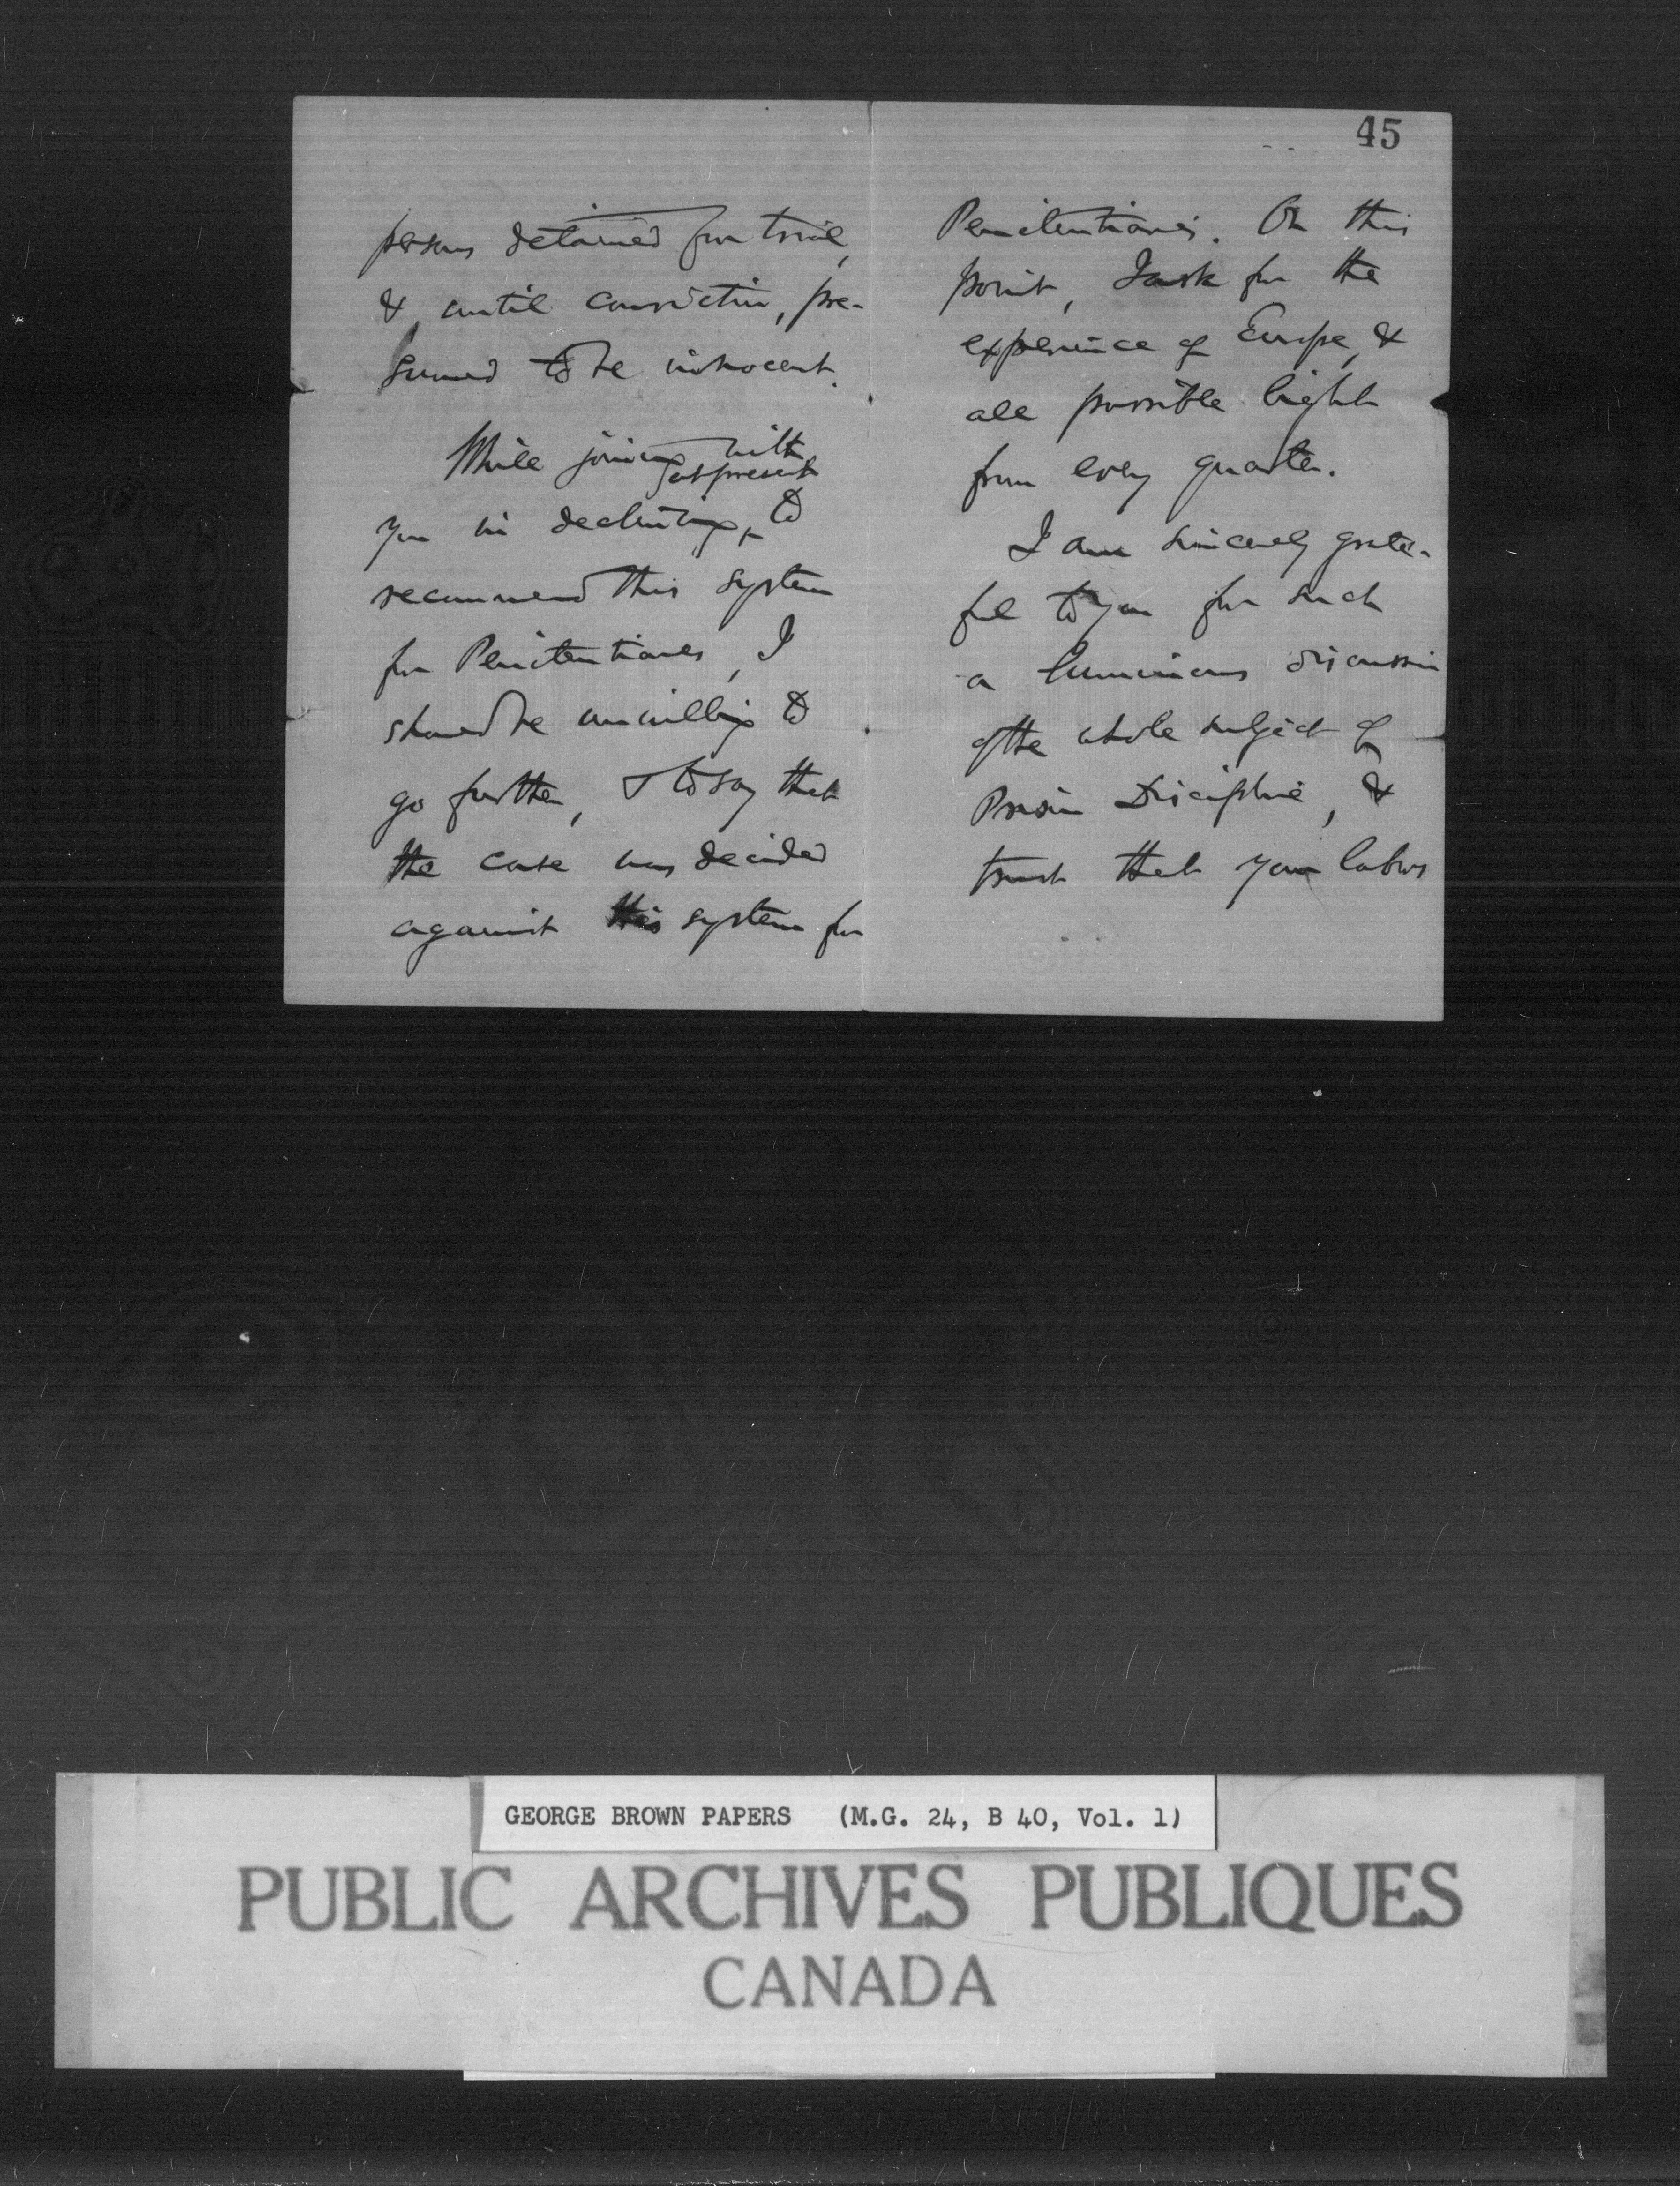 persons detained for trial,
& until conviction, pre-
sumed to be innocent.
While joining with
at present
you in declining, to
recommend this system
for Penitentiaries, I
should be unwilling to
go further, & to say that
the case was decided
against this system for
45
Penitentiaries. On this
point, I ask for the
experience of Europe, &
all possible light
from every quarter.
I am sincerely grate-
ful to you for such
a luminous discussion
of the whole subject of
Prison Discipline, &
trust that your labors
GEORGE BROWN PAPERS (M.G. 24, B 40, Vol. 1)
PUBLIC ARCHIVES PUBLIQUES
CANADA